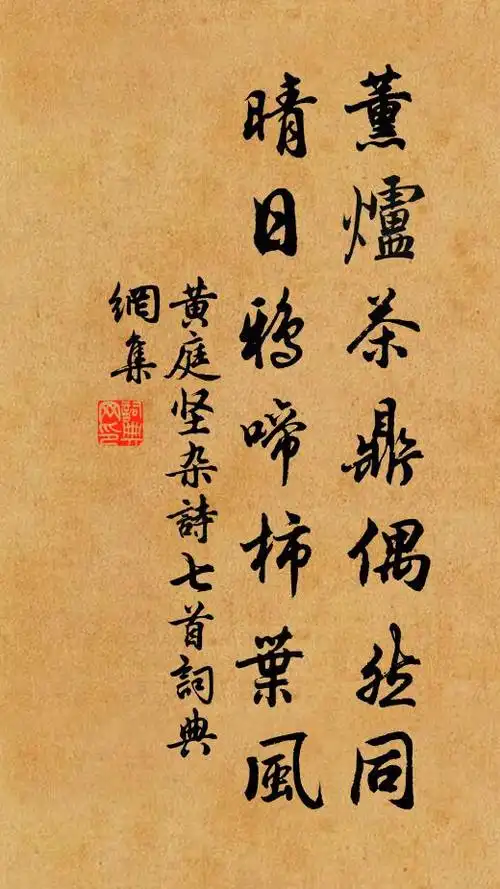 薰爐茶鼎偶然同
晴日鴉啼柿葉風
黄庭坚杂詩七首詞典
網集
詞典
网印